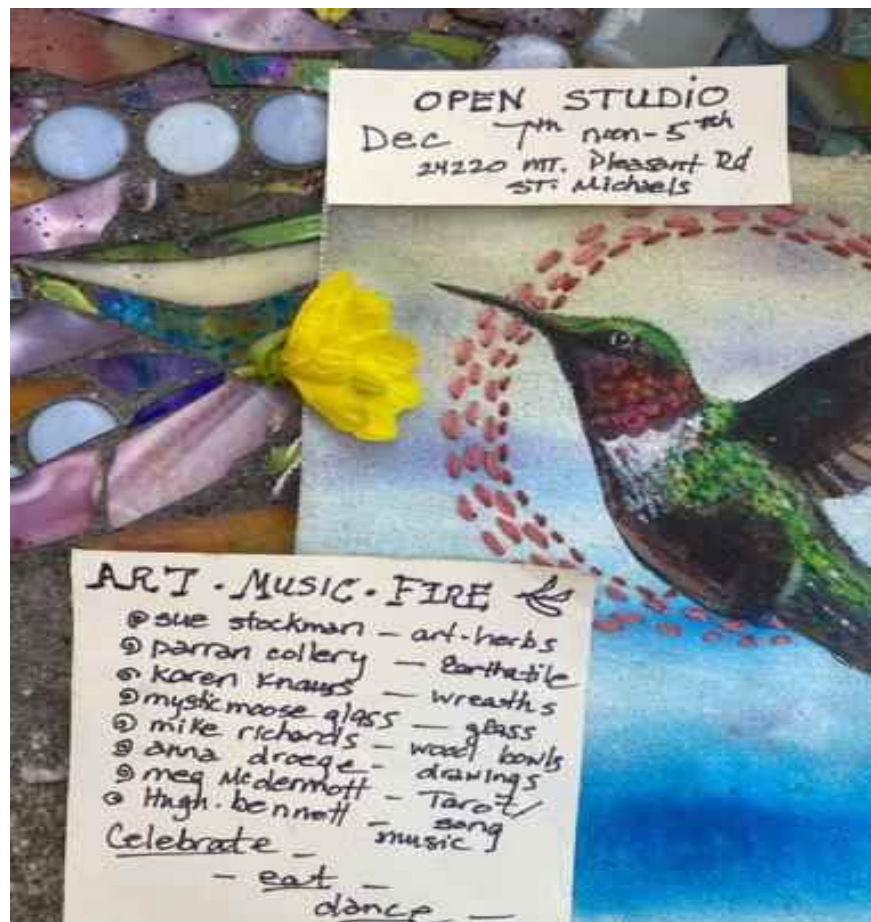 OPEN STUDIO
Dec 7th noon-5
24220 MT. Pleasant Rd
ST. Michaels
ART · MUSIC · FIRE
sue stockman — art-herbs
parran collery — Earth+tile
karen knauss — wreaths
mysticmoose glass — glass
mike richards — wood bowls
anna droege - drawings
meg McDermott - Tarot/
Hugh bennett - song
music
Celebrate -
- eat -
dance -